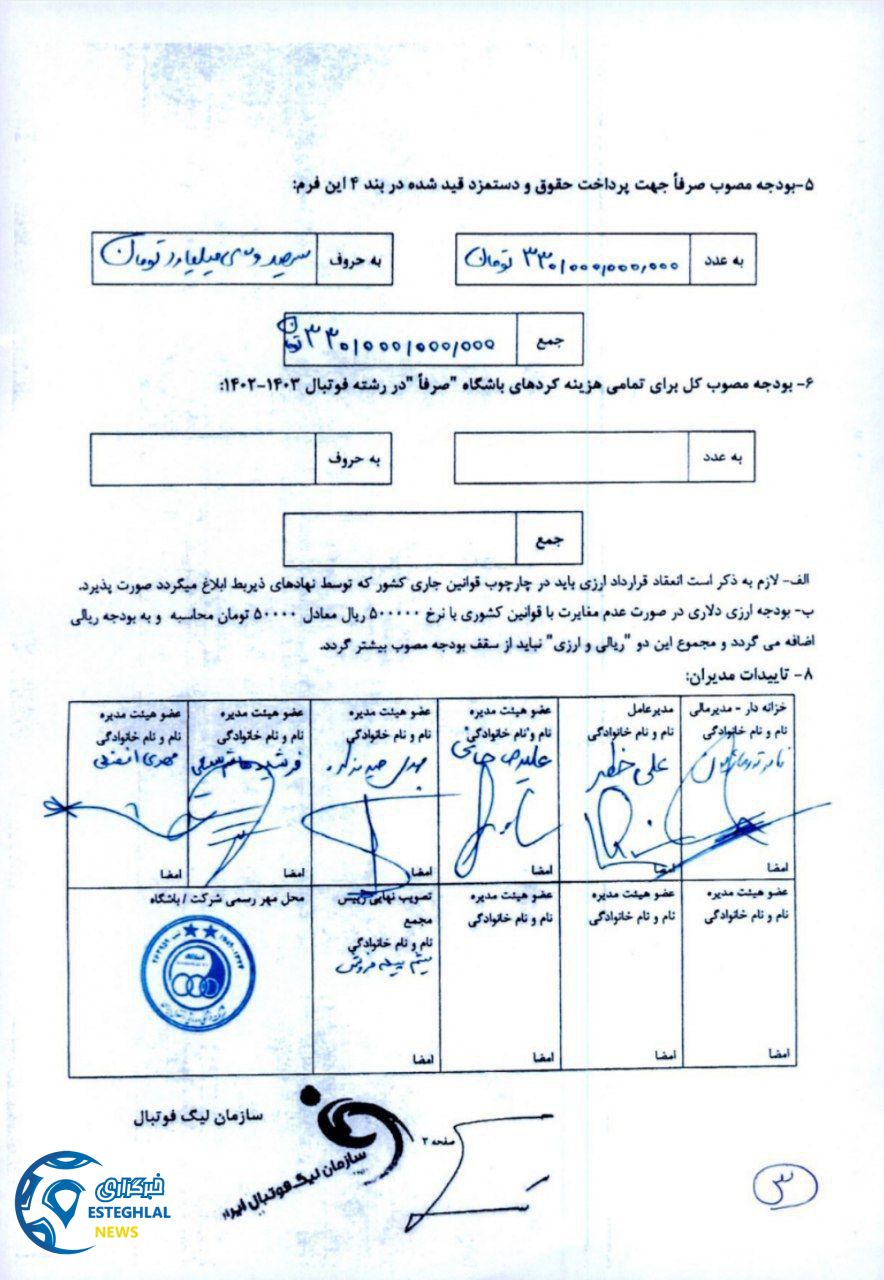 ۵-بودجه مصوب صرفاً جهت پرداخت حقوق و دستمزد قید شده در بند ۴ این فرم:
به عدد ۳۳۰/۰۰۰/۰۰۰/۰۰۰ تومان به حروف سیصد و سی میلیارد تومان
جمع ۳۳۰/۰۰۰/۰۰۰/۰۰۰ تومان
۶- بودجه مصوب کل برای تمامی هزینه کردهای باشگاه "صرفاً "در رشته فوتبال ۱۴۰۳-۱۴۰۲:
به عدد به حروف
جمع
الف- لازم به ذکر است انعقاد قرارداد ارزی باید در چارچوب قوانین جاری کشور که توسط نهادهای ذیربط ابلاغ میگردد صورت پذیرد.
ب- بودجه ارزی دلاری در صورت عدم مغایرت با قوانین کشوری با نرخ ۵۰۰۰۰۰ ریال معادل ۵۰۰۰۰ تومان محاسبه و به بودجه ریالی
اضافه می گردد و مجموع این دو "ریالی و ارزی" نباید از سقف بودجه مصوب بیشتر گردد.
۸- تاییدات مدیران:
خزانه دار - مدیرمالی مدیرعامل عضو هیئت مدیره عضو هیئت مدیره عضو هیئت مدیره عضو هیئت مدیره
نام و نام خانوادگی نام و نام خانوادگی نام و نام خانوادگی نام و نام خانوادگی نام و نام خانوادگی نام و نام خانوادگی
علی خطیر علیرضا مهدی فرشید سمیعی مهدی
امضا امضا امضا امضا امضا امضا
عضو هیئت مدیره عضو هیئت مدیره عضو هیئت مدیره تصویب نهایی رییس محل مهر رسمی شرکت / باشگاه
مجمع
نام و نام خانوادگی نام و نام خانوادگی نام و نام خانوادگی نام و نام خانوادگی
میثم
امضا امضا امضا امضا
سازمان لیگ فوتبال
صفحه ۳
سازمان لیگ فوتبال ایران
۳
خبرگزاری
ESTEGHLAL
NEWS